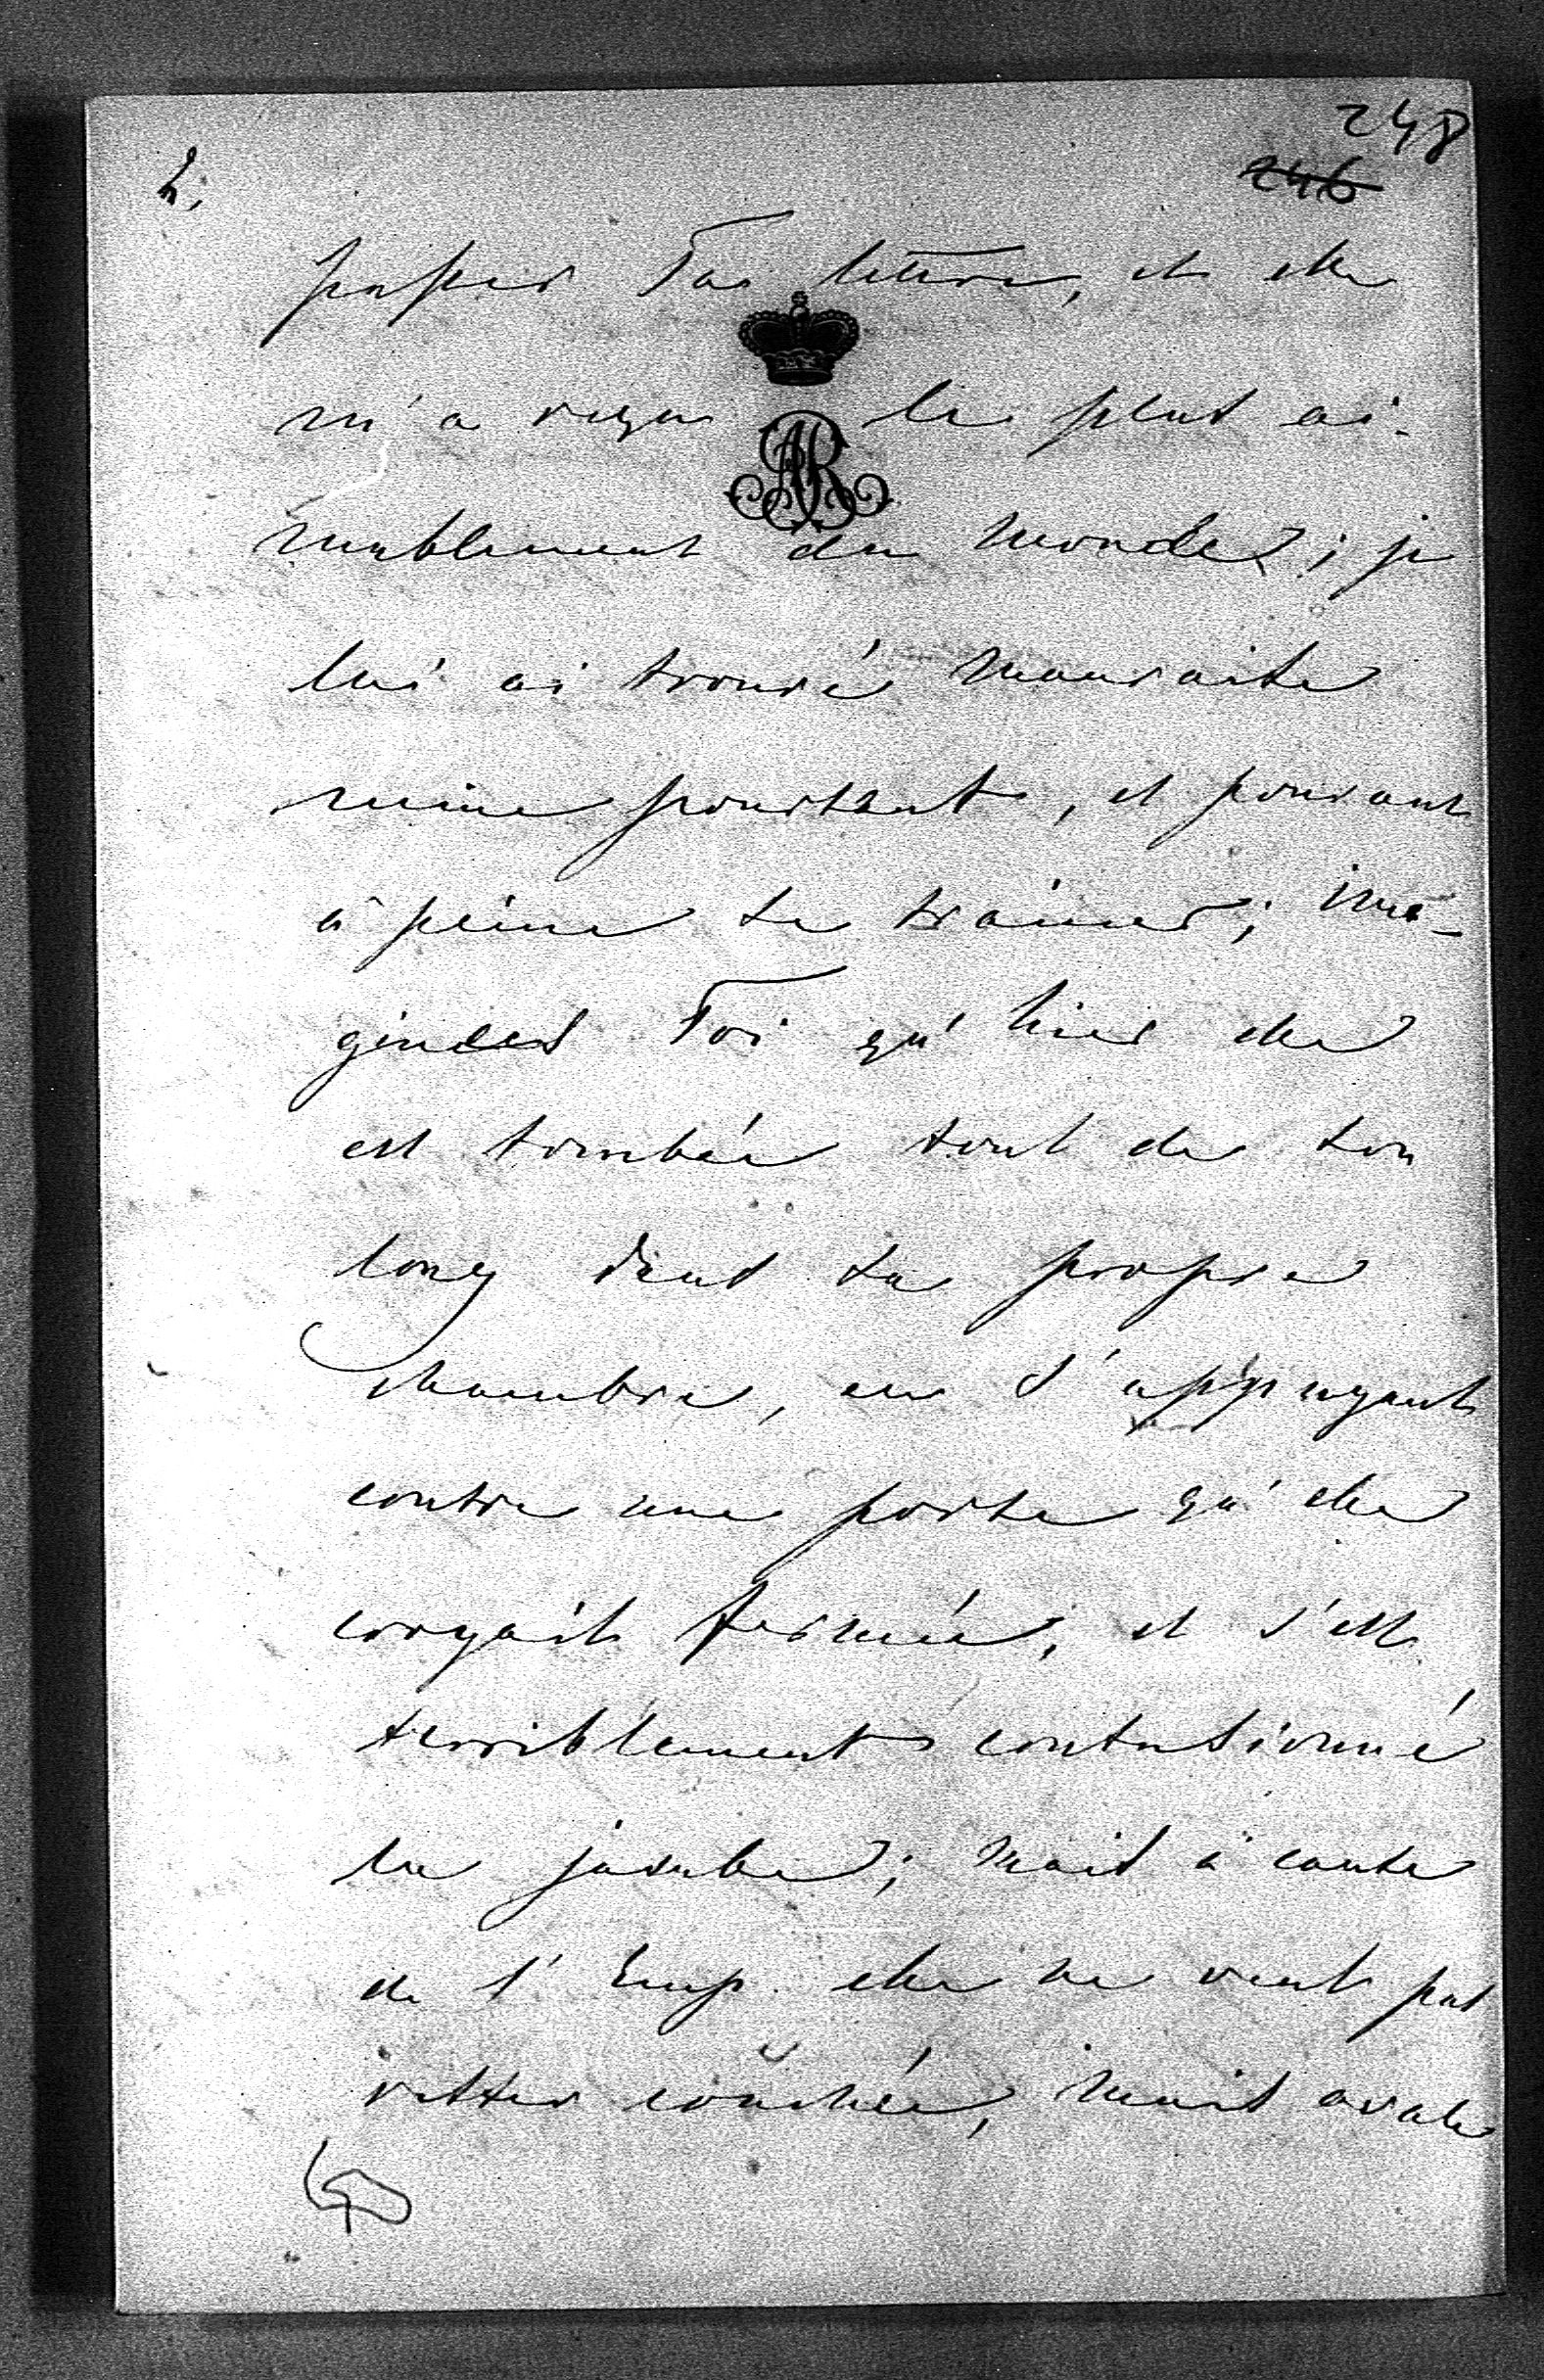 248
246
2,
passer Ta lettre, et elle
m'a reçu le plus ai-
mablement du monde; je
lui ai trouvé mauvaise
mine pourtant, et pouvant
à peine se trainer; ima-
gines Toi qu'hier elle
est tombée tout de son
long dans sa propre
chambre, en s'appuyant
contre une porte qu'elle
croyait fermée, et s'est
terriblement contusionné
la jambe; mais à cause
de l'Emp. elle ne veut pas
rester couchée, mais avale